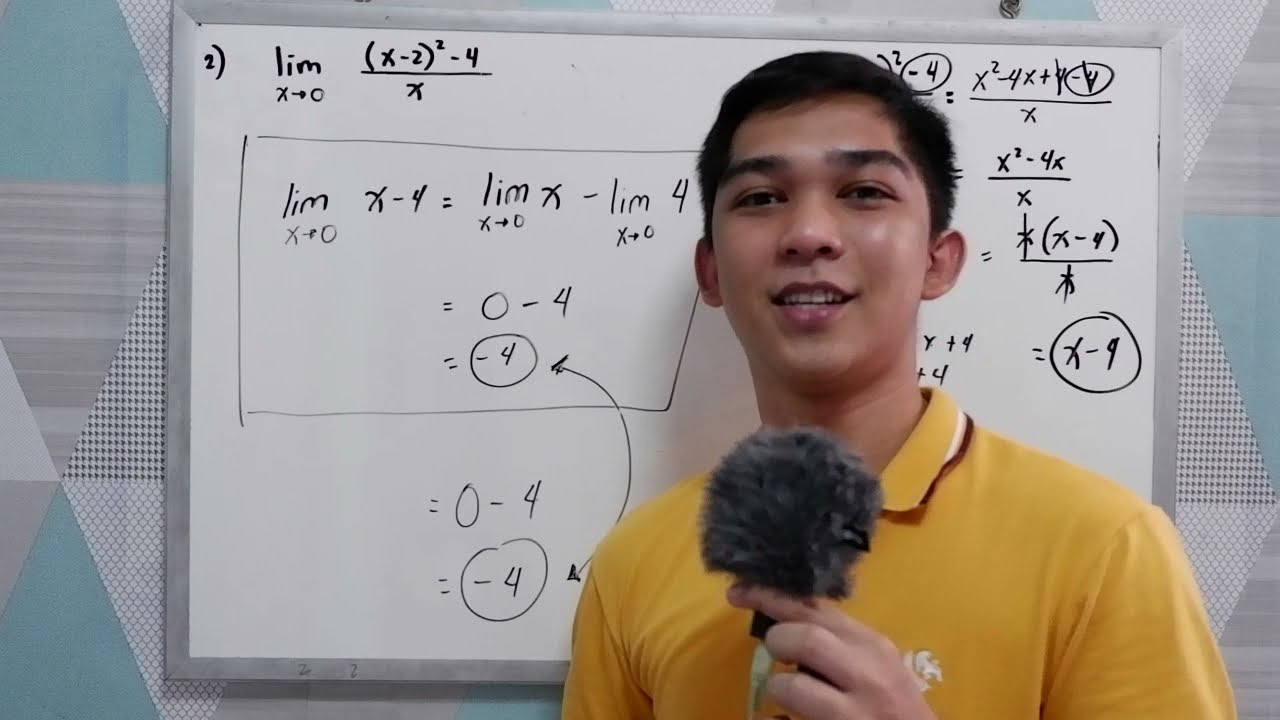 2) lim x→0 (x-2)² - 4 / x
lim x→0 x - 4 = lim x→0 x - lim x→0 4
= 0 - 4
= -4
= 0 - 4
= -4
)² - 4 = x² - 4x + 4 - 4 / x
= x² - 4x / x
= x(x - 4) / x
x + 4
+ 4
= x - 4